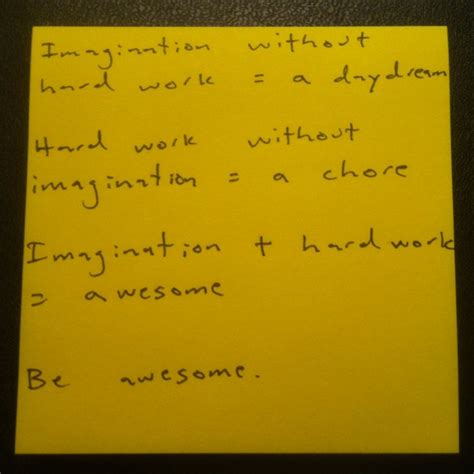 Imagination without
hard work = a daydream
Hard work without
imagination = a chore
Imagination + hard work
= awesome
Be awesome.